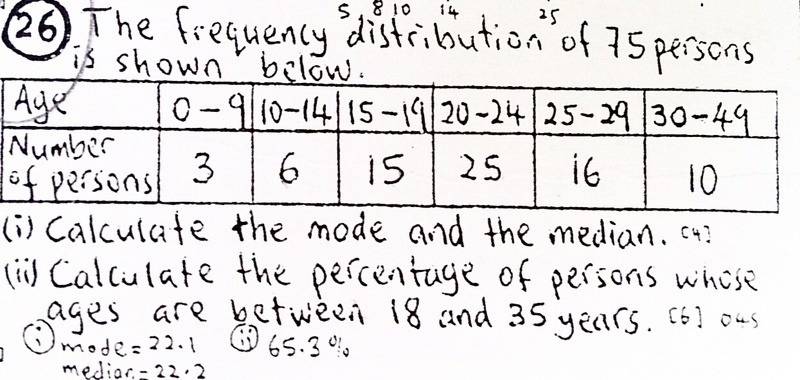 5 8 10 14 25
26 The frequency distribution of 75 persons
is shown below.
Age 0-9 10-14 15-19 20-24 25-29 30-49
Number
of persons 3 6 15 25 16 10
(i) Calculate the mode and the median. [4]
(ii) Calculate the percentage of persons whose
ages are between 18 and 35 years. [6]
(i) mode = 22.1 (ii) 65.3%
median = 22.2